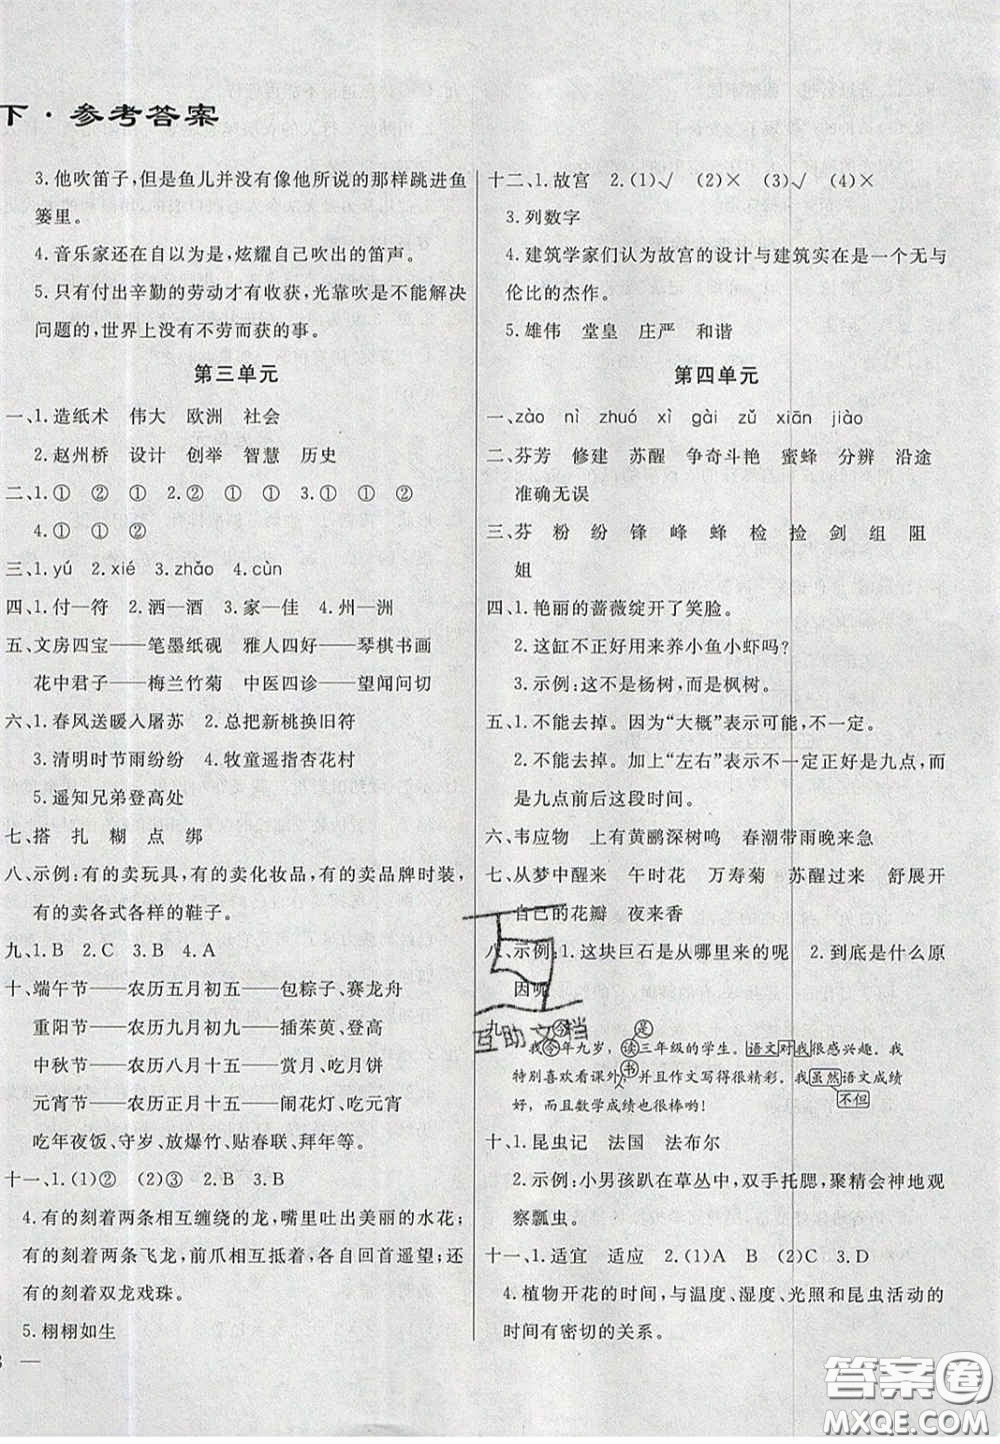 下·参考答案
3.他吹笛子,但是鱼儿并没有像他所说的那样跳进鱼
篓里。
4.音乐家还在自以为是,炫耀自己吹出的笛声。
5.只有付出辛勤的劳动才有收获,光靠吹是不能解决
问题的,世界上没有不劳而获的事。
第三单元
一、1.造纸术 伟大 欧洲 社会
2.赵州桥 设计 创举 智慧 历史
二、1.① ② ① 2.② ① ① 3.① ① ②
4.① ① ②
三、1.yú 2.xié 3.zhǎo 4.cùn
四、1.付—符 2.洒—酒 3.家—佳 4.州—洲
五、文房四宝——笔墨纸砚 雅人四好——琴棋书画
花中君子——梅兰竹菊 中医四诊——望闻问切
六、1.春风送暖入屠苏 2.总把新桃换旧符
3.清明时节雨纷纷 4.牧童遥指杏花村
5.遥知兄弟登高处
七、搭 扎 糊 点 绑
八、示例:有的卖玩具,有的卖化妆品,有的卖品牌时装,
有的卖各式各样的鞋子。
九、1.B 2.C 3.B 4.A
十、端午节——农历五月初五——包粽子、赛龙舟
重阳节——农历九月初九——插茱萸、登高
中秋节——农历八月十五——赏月、吃月饼
元宵节——农历正月十五——闹花灯、吃元宵
吃年夜饭、守岁、放爆竹、贴春联、拜年等。
十一、1.(1)② (2)③ 2.B 3.B
4.有的刻着两条相互缠绕的龙,嘴里吐出美丽的水花;
有的刻着两条飞龙,前爪相互抵着,各自回首遥望;还
有的刻着双龙戏珠。
5.栩栩如生
十二、1.故宫 2.(1)√ (2)× (3)√ (4)×
3.列数字
4.建筑学家们认为故宫的设计与建筑实在是一个无与
伦比的杰作。
5.雄伟 堂皇 庄严 和谐
第四单元
一、zào nì zhuó xì gài zǔ xiān jiào
二、芬芳 修建 苏醒 争奇斗艳 蜜蜂 分辨 沿途
准确无误
三、芬 粉 纷 锋 峰 蜂 检 捡 剑 组 阻
姐
四、1.艳丽的蔷薇绽开了笑脸。
2.这缸不正好用来养小鱼小虾吗?
3.示例:这是杨树,而那是枫树。
五、1.不能去掉。因为“大概”表示可能,不一定。
2.不能去掉。加上“左右”表示不一定正好是九点,而
是九点前后这段时间。
六、韦应物 上有黄鹂深树鸣 春潮带雨晚来急
七、从梦中醒来 午时花 万寿菊 苏醒过来 舒展开
自己的花瓣 夜来香
八、示例:1.这块巨石是从哪里来的呢 2.到底是什么原
因呢
九、
今 是
我今年九岁,读三年级的学生。语文对我很感兴趣。我
特别喜欢看课外书,并且作文写得很精彩。我虽然语文成绩
好,而且数学成绩也很棒哟! 不但
十、1.昆虫记 法国 法布尔
2.示例:小男孩趴在草丛中,双手托腮,聚精会神地观
察瓢虫。
十一、1.适宜 适应 2.(1)A B (2)C 3.D
4.植物开花的时间,与温度、湿度、光照和昆虫活动的
时间有密切的关系。
互助文档
答案圈
MXQE.COM